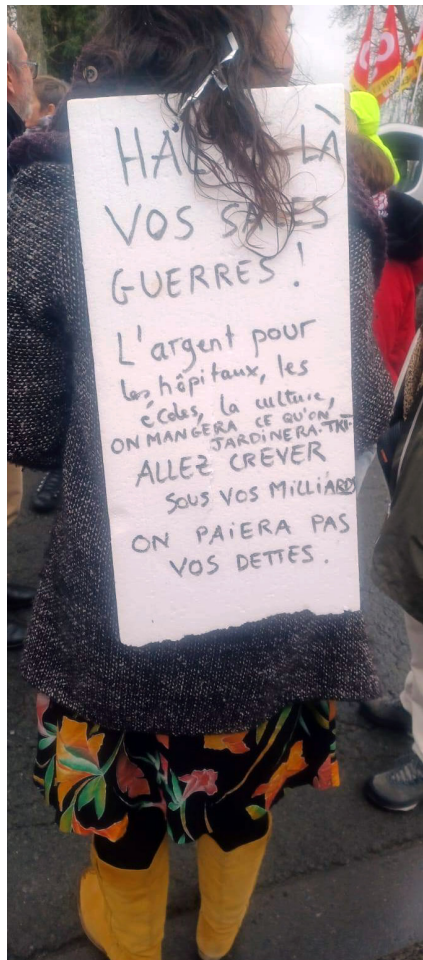 HA LÀ
VOS SALES
GUERRES !
L'argent pour
les hôpitaux, les
écoles, la culture,
ON MANGERA CE QU'ON
JARDINERA-TKT-
ALLEZ CREVER
SOUS VOS MILLIARDS
ON PAIERA PAS
VOS DETTES.